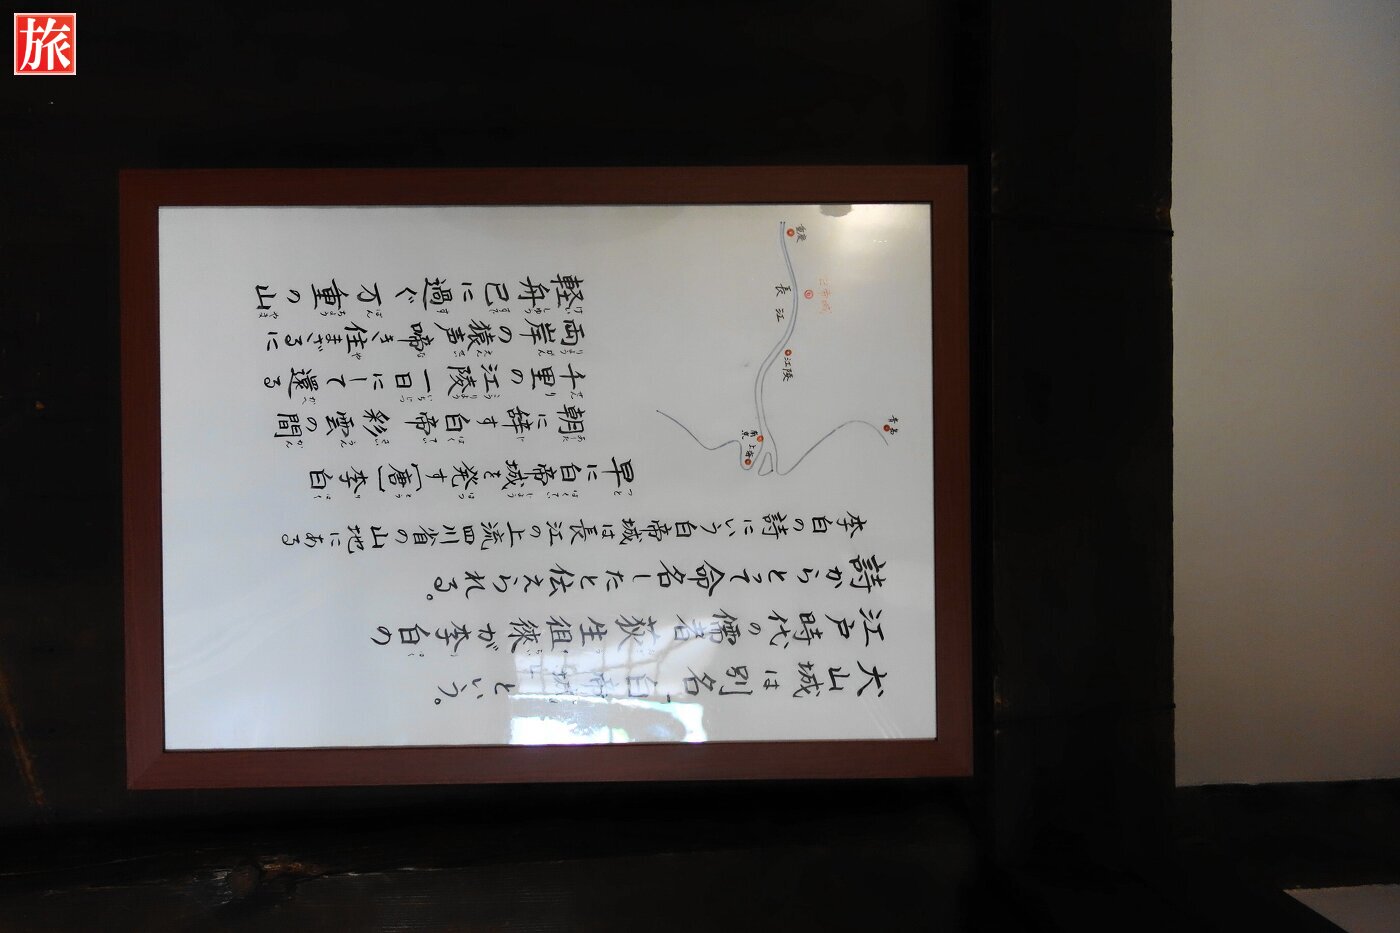 旅
犬山城は別名「白帝城」という。
江戸時代の儒者荻生徂徠が李白の
詩からとって命名したと伝えられる。
李白の詩にいう白帝城は長江の上流四川省の山地にある
早に白帝城を発す [唐] 李白
朝に辞す白帝彩雲の間
千里の江陵一日にして還る
両岸の猿声啼き住まざるに
軽舟已に過ぐ万重の山
重慶
白帝城
長江
江陵
南京
上海
青島